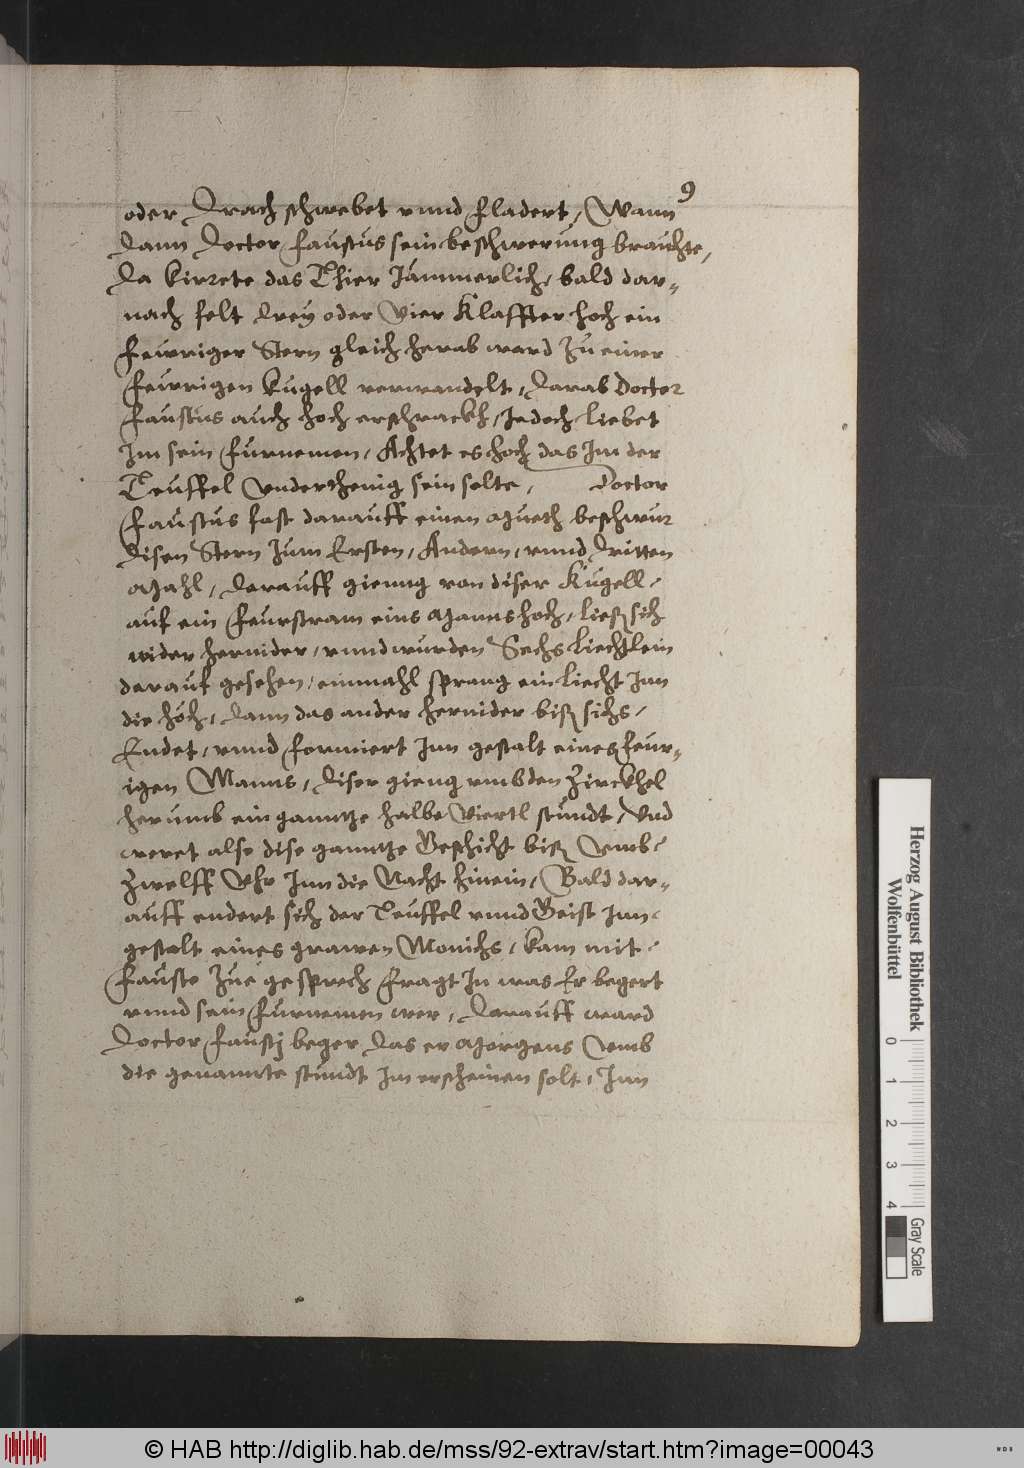 9
oder Drach schwebet vnnd fladert, Wann
dann Doctor Faustus sein beschwerung brauchte,
da kirrete das Thier Jämmerlich, bald dar-
nach felt drey oder Vier Klaffter hoch ein
Fewriger Stern gleich herab ward zu einer
fewrigen kugell verwandelt, darab Doctor
Faustus auch hoch erschrackh, Jedoch liebet
Jm sein Fürnemen, Achtet es hoch das Jm der
Teuffel Vnderthenig sein solte, Doctor
Faustus fast darauff einen Mueth beschwur
disen Stern zum Ersten, Andern, vnnd dritten
Mahl, darauff gienng von diser Kugell,
auf ein Feurstram eins Manns hoch, liesz sich
wider hernider, vnnd wurden Sechs liechtlein
darauf gesehen, einmahl sprang ein liecht Jnn
die höch, dann das ander hernider bisz sichs,
Endet, vnnd formiert Jnn gestalt eines feur-
igen Manns, diser gieng vmb den Zirckhel
herumb ein ganntze halbe Viertl stundt, Vnd
weret also dise ganntze Geschicht bisz Vmb,
Zwelff Vhr Jnn die Nacht hinein, Bald dar-
auff endert sich der Teuffel vnnd Geist Jnn,
gestalt eines grawen Monichs, kam mit,
Fausto zue gesprech fragt Jn was Er begert
vnnd sein Fürnemen wer, Darauff ward
Doctor Faustj beger das er Morgens Vmb
die genannte stundt Jm erscheinen solt, Jnn
Herzog August Bibliothek
Wolfenbüttel
0 1 2 3 4
Gray Scale
© HAB http://diglib.hab.de/mss/92-extrav/start.htm?image=00043